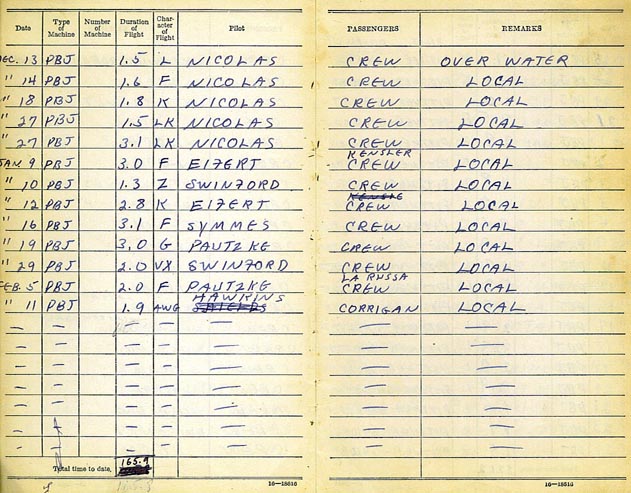 Date Type of Machine Number of Machine Duration of Flight Character of Flight Pilot PASSENGERS REMARKS
DEC. 13 PBJ 1.5 L NICOLAS CREW OVER WATER
" 14 PBJ 1.6 F NICOLAS CREW LOCAL
" 18 PBJ 1.8 K NICOLAS CREW LOCAL
" 27 PBJ 1.5 LK NICOLAS CREW LOCAL
" 27 PBJ 3.1 LK NICOLAS CREW LOCAL
KENSLER
JAN 9 PBJ 3.0 F EIFERT CREW LOCAL
" 10 PBJ 1.3 Z SWINFORD CREW LOCAL
" 12 PBJ 2.8 K EIFERT CREW LOCAL
" 16 PBJ 3.1 F SYMMES CREW LOCAL
" 19 PBJ 3.0 G PAUTZKE CREW LOCAL
" 29 PBJ 2.0 VX SWINFORD CREW LOCAL
LA RUSSA
FEB. 5 PBJ 2.0 F PAUTZKE CREW LOCAL
HAWKINS
" 11 PBJ 1.9 AWG SHIELDS CORRIGAN LOCAL
Total time to date, 165.9
16—18616 16—18616